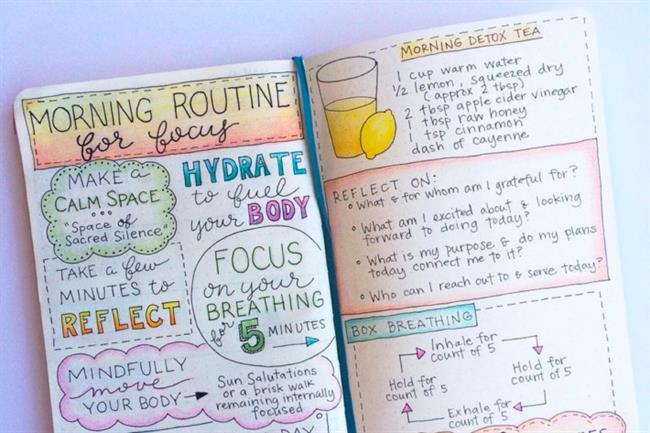 MORNING ROUTINE
for focus
MAKE a
CALM SPACE
"Space of
Sacred Silence"
HYDRATE
to fuel
your BODY
TAKE A few
MINUTES to
REFLECT
FOCUS
on your
BREATHING
for 5 MINUTES
MINDFULLY
move
YOUR BODY
Sun Salutations
or a brisk walk
remaining internally
focused
DAY
MORNING DETOX TEA
1 cup warm water
1/2 lemon, squeezed dry
(approx 2 tbsp)
2 tbsp apple cider vinegar
1 tbsp raw honey
1 tsp cinnamon
dash of cayenne
REFLECT ON:
• What & for whom am I grateful for?
• What am I excited about & looking
forward to doing today?
• What is my purpose & do my plans
today connect me to it?
• Who can I reach out to & serve today?
BOX BREATHING
Inhale for
count of 5
Hold for
count of 5
Exhale for
count of 5
Hold for
count of 5